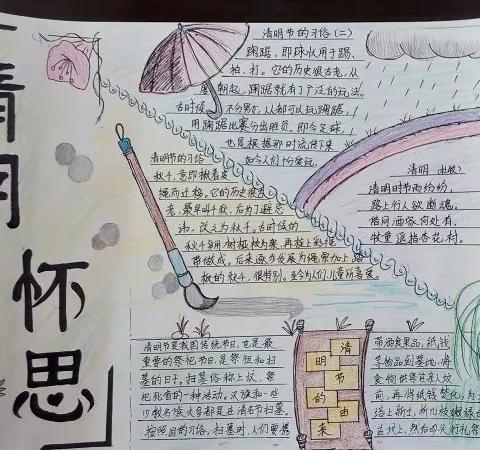 清明
怀思
清明节的习俗(二)
蹴踘,即球,以用于踢、
拍、打。它的历史很古老,从
朝起,蹴踘就有了广泛的玩法。
古时候,不分男女,人都可以玩蹴踘,
用蹴踘比赛分出胜负,即今足球,
也是根据那时流传下来
如今人们十分爱玩。
清明节的习俗
秋千,意即揪着皮
绳而迁移,它的历史很古
老,最早叫千秋,后为了避忌
讳,改之为秋千。古时候的
秋千多用树桠枝为架,再拴上彩绳
带做成。后来逐步发展为绳索加上踏
板的秋千,很特别。至今为人们、儿童所喜爱。
清明(杜牧)
清明时节雨纷纷,
路上行人欲断魂。
借问酒家何处有,
牧童遥指杏花村。
清明节是我国传统节日,也是最
重要的祭祀节日,是祭祖和扫
墓的日子。扫墓俗称上坟,祭
祀死者的一种活动。汉族和一些
少数民族大多都是在清明节扫墓。
按照旧的习俗,扫墓时,人们要携
清明节的由来
带酒食果品,纸钱
等物品到墓地,将
食物供祭在亲人坟
前,再将纸钱焚化,为
培上新土,折几枝嫩绿
在坟上,然后叩头行礼祭